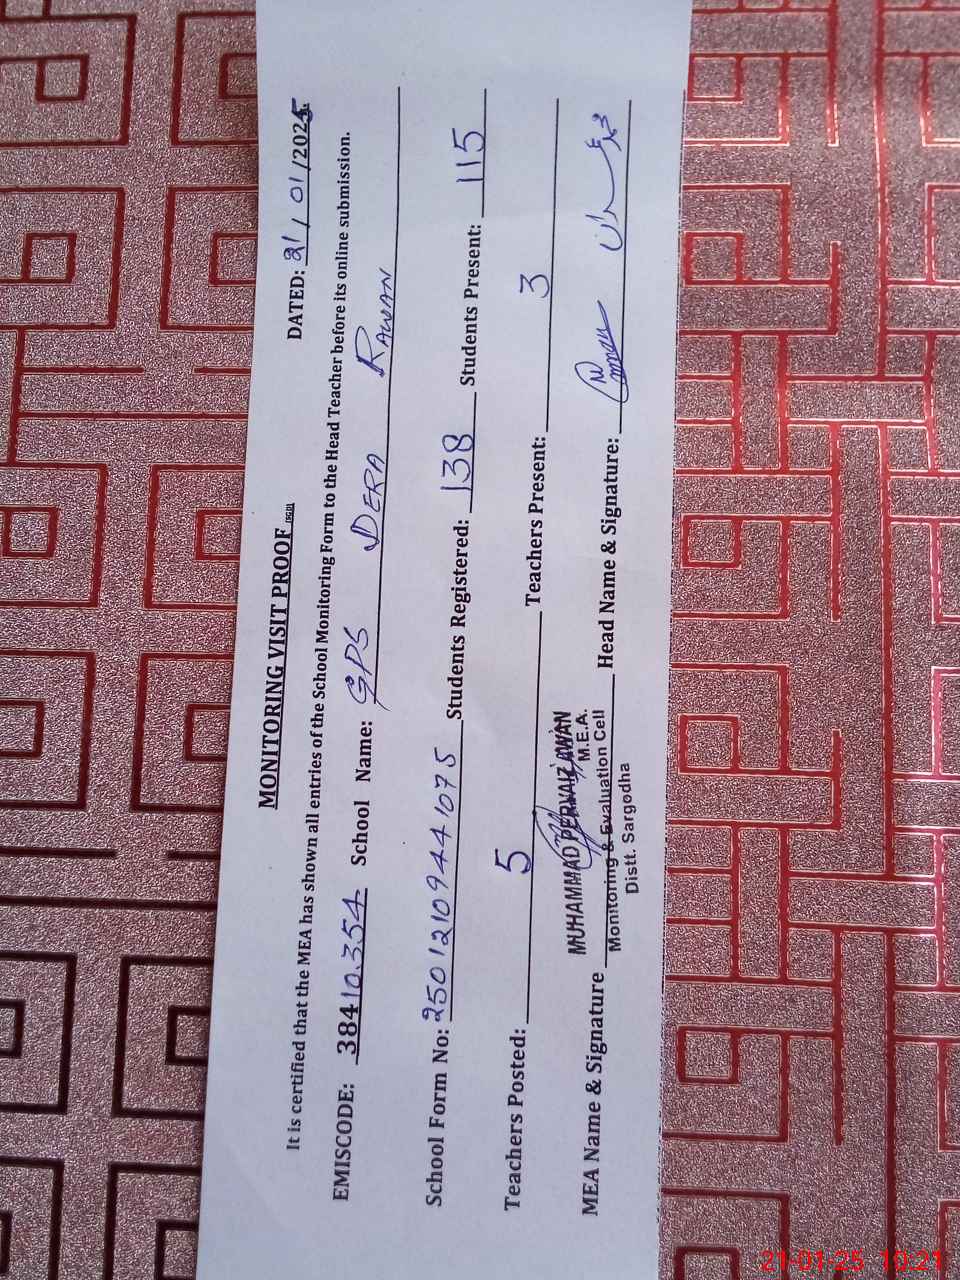 MONITORING VISIT PROOF
DATED: 21/01/2025
It is certified that the MEA has shown all entries of the School Monitoring Form to the Head Teacher before its online submission.
EMISCODE: 38410354 School Name: GPS DERA RAWAN
School Form No: 2501210944 1075 Students Registered: 138 Students Present: 115
Teachers Posted: 5 Teachers Present: 3
MEA Name & Signature Head Name & Signature:
MUHAMMAD PERVAIZ AWAN
M.E.A.
Monitoring & Evaluation Cell
Distt. Sargodha
21-01-25 10:21